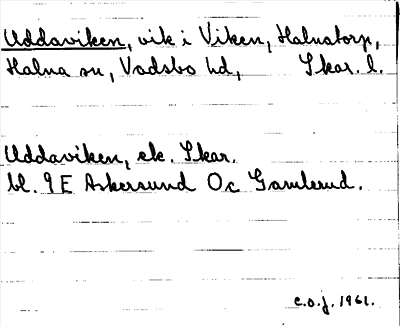 Uddaviken, vik i Viken, Halnatorp,
Halna sn, Vadsbo hd, Skar. l.
Uddaviken, ek. Skar.
bl. 9E Askersund Oc Gamlerud.
C.O.J. 1961.